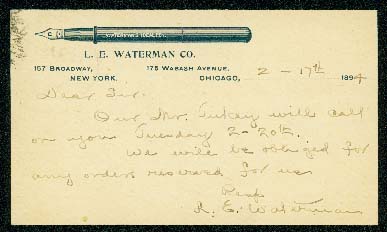 WATERMAN'S IDEAL
L. E. WATERMAN CO.
157 BROADWAY, 175 WABASH AVENUE,
NEW YORK. CHICAGO, 2-17th 1894
Dear Sir.
Our Mr. Tukey will call
on you Tuesday 2-20th.
We will be obliged for
any orders reserved for us
Resp
L. E. Waterman